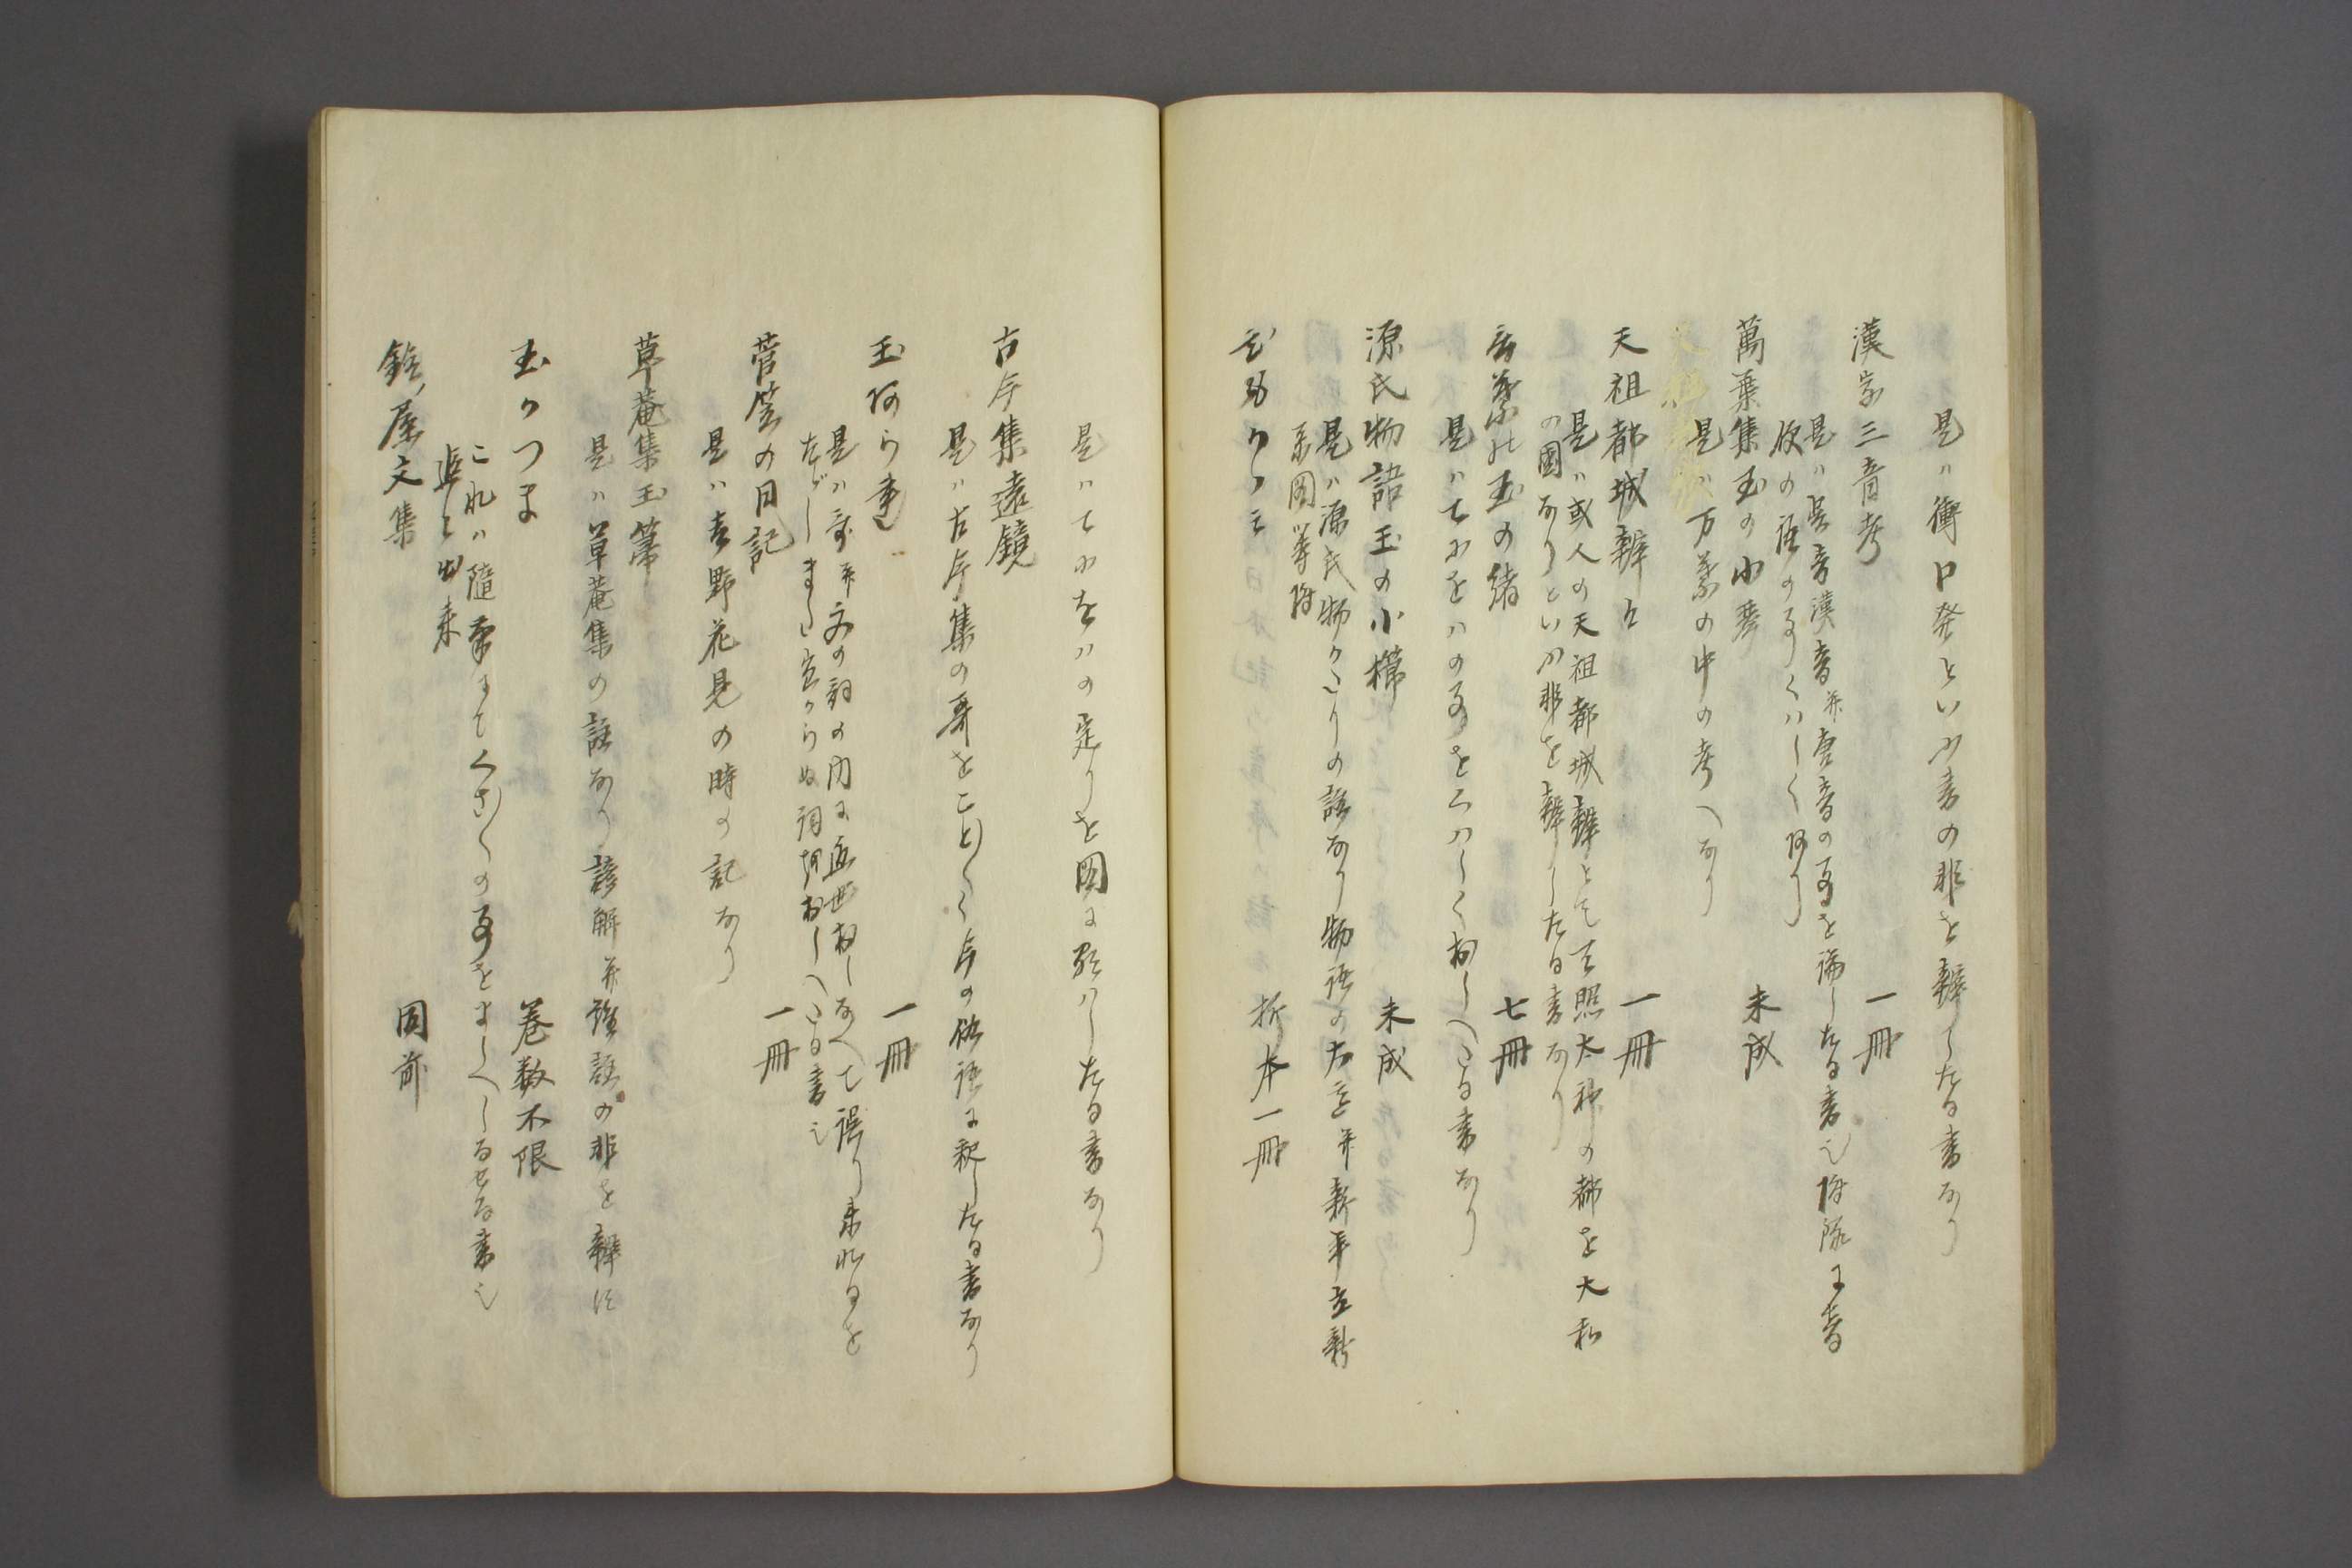 是ハ衝口発といふ書の非を辨したる書なり
漢字三音考　一冊
是ハ呉音漢音并唐音の事を論したる書也附録に音
便の語の事くハしくあり
萬葉集玉の小琴　未成
是ハ万葉の中の考へなり
天祖都城辨々　一冊
是ハ或人の天祖都城辨とて天照大神の都を大和
の國なりといふ非を辨したる書なり
言葉の玉の緒　七冊
是ハてにをハの事をくハしくおしへたる書なり
源氏物語玉の小櫛　未成
是ハ源氏物かたりの註なり物語の大意并新年立新
系圖等附
ひもかゝみ　折本一冊
是ハてにをハの定りを図に顕ハしたる書なり
古今集遠鏡
是ハ古今集の哥をこと〴〵く今の俗語に釈したる書なり
玉あられ　一冊
是ハ哥并文の詞の内に近世おしなへて誤り来れるを
たゞしまた宜からぬ詞抔おしへたる書也
菅笠の日記　一冊
是ハ吉野花見の時の記なり
草菴集玉箒
是ハ草菴集の註なり諺解并難註の非を辨す
玉かつま　巻数不限
これハ随筆にてくさ〴〵の事をましへしるせる書也
追々出来
鈴ノ屋文集　同前